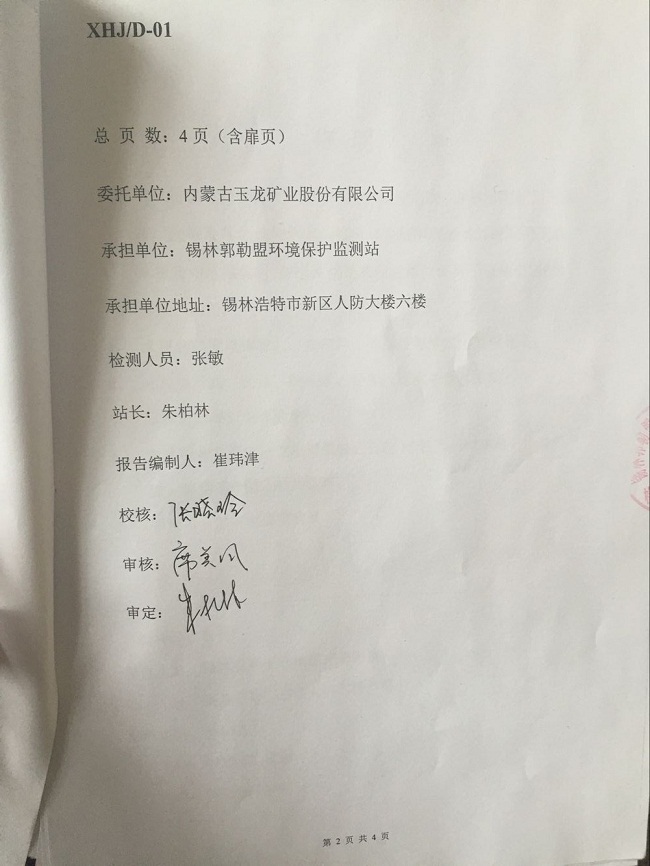 XHJ/D-01
总 页 数：4 页（含扉页）
委托单位：内蒙古玉龙矿业股份有限公司
承担单位：锡林郭勒盟环境保护监测站
承担单位地址：锡林浩特市新区人防大楼六楼
检测人员：张敏
站长：朱柏林
报告编制人：崔玮津
校核：张晓玲
审核：席美凤
审定：朱柏林
第 2 页 共 4 页